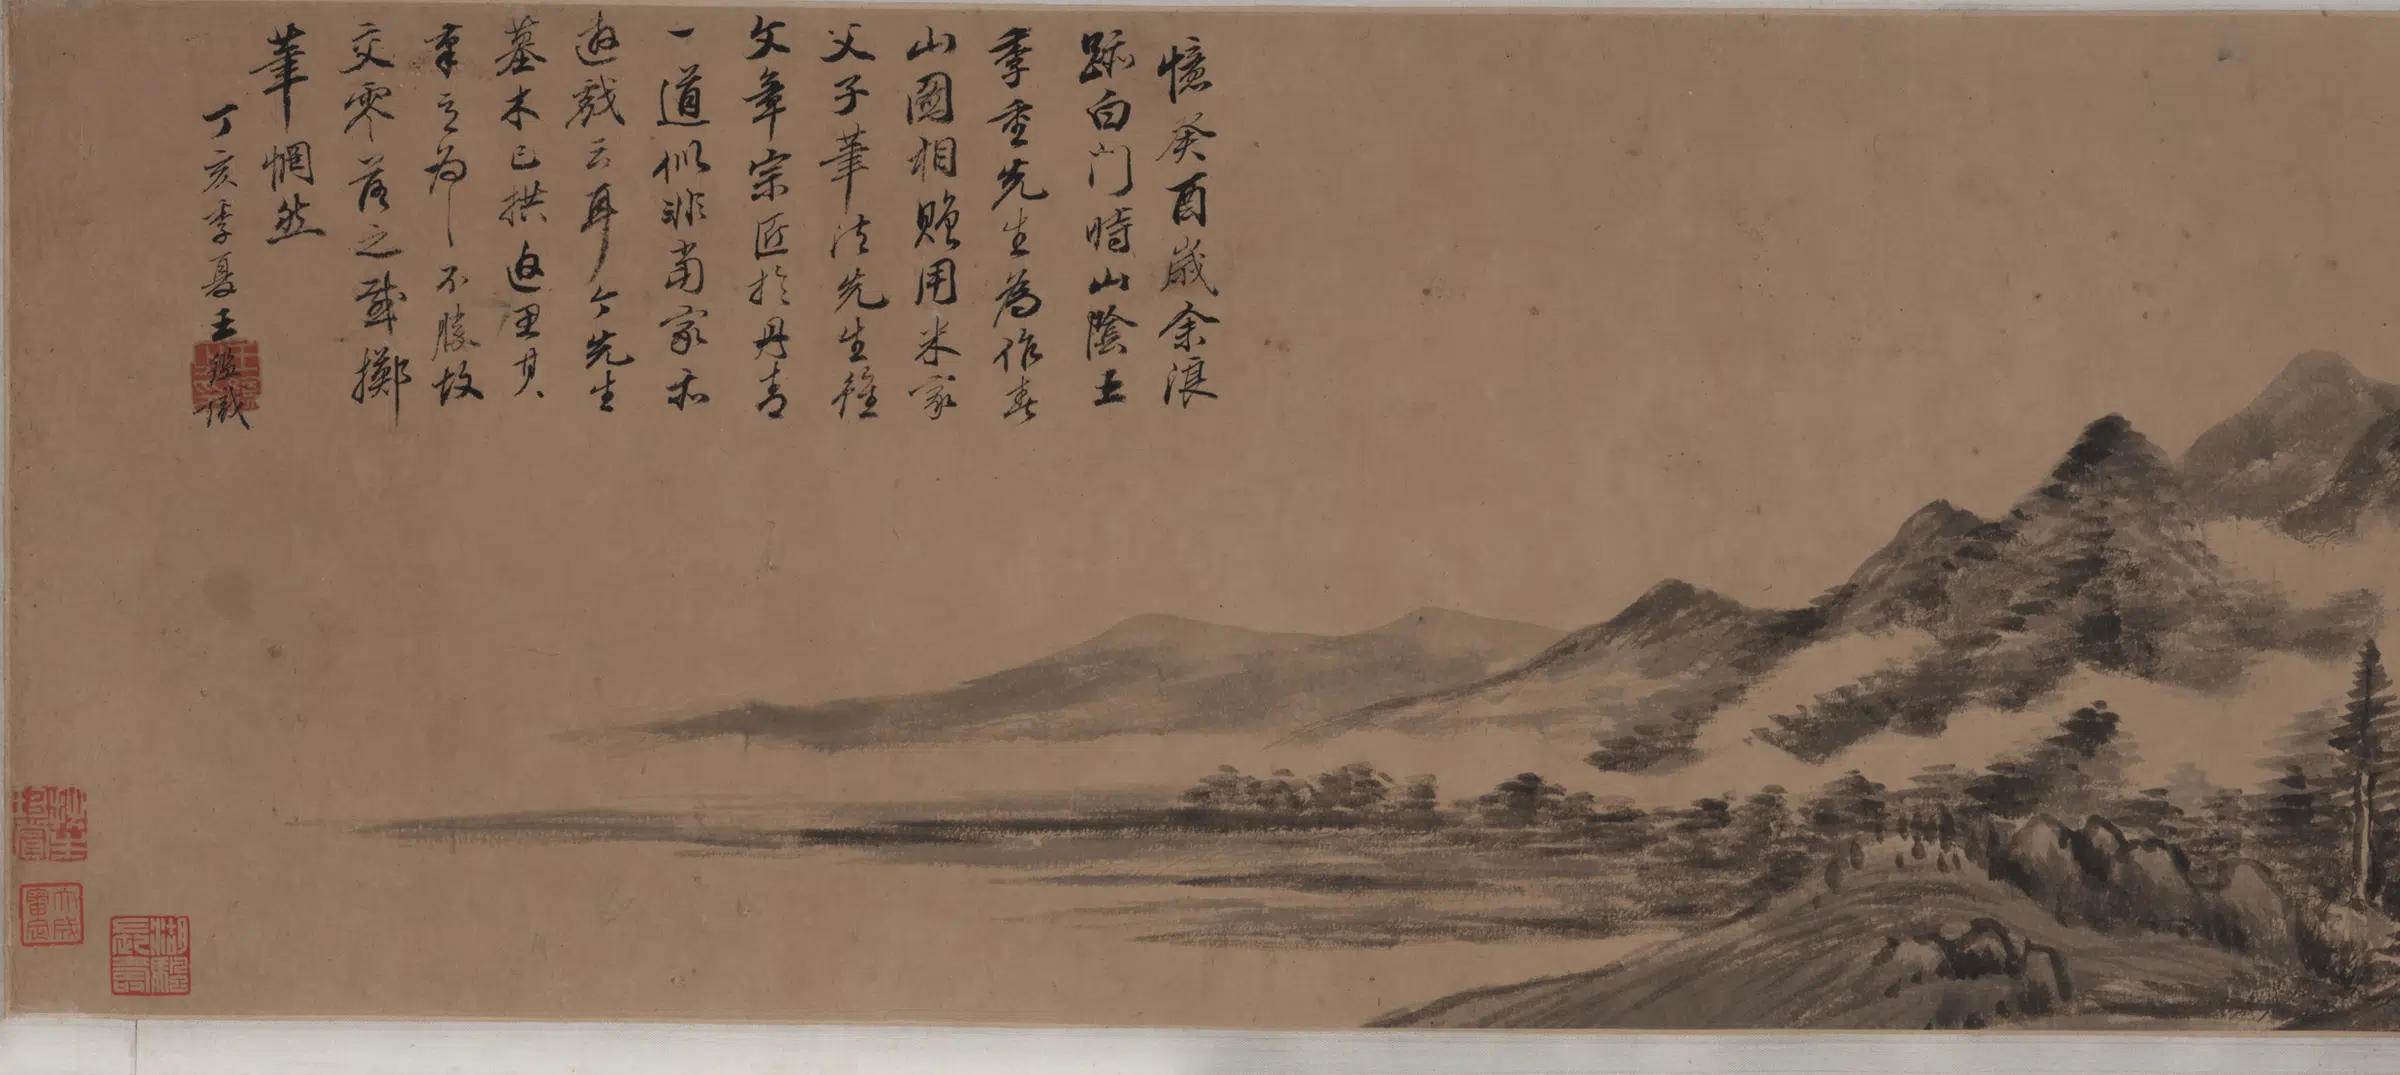 憶癸酉歲余浪
跡白门時山陰王
季重先生為作春
山圖相贈用米家
父子筆法先生雖
文章宗匠於丹青
一道似非當家亦
遊戲云耳今先生
墓木已拱追思其
筆立為一不勝故
交零落之感擲
筆惘然
丁亥季夏王鑑識